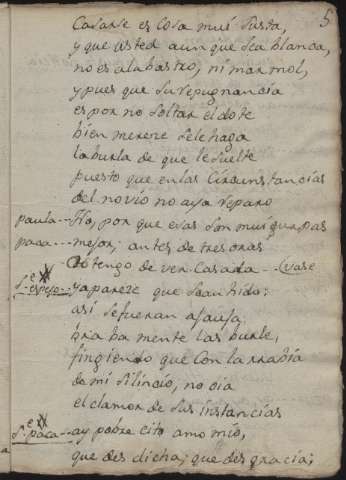 5
Casarse es cosa mui Justa,
y que usted aunque sea blanda,
no es alabastro, ni marmol,
y pues que su repugnancia
es por no soltar el dote
bien merece se le haga
la burla de que le suelte
puesto que en las Circunstancias
del novio no aya reparo
paula --- Tio, por que esas son mui guapas
paca --- mejor; antes de tres oras
os tengo de ver Casada -- (vase
Sⁿ espejo -- ya pareze que sean hido:
asi se fueran a Jauja,
gra ha mente las burle,
fingiendo que con la rrabia
de mi silincio, no oia
el clamor de sus instancias
Sⁿ paca --- ay pobre cito amo mio,
que des dicha; que des gracia;